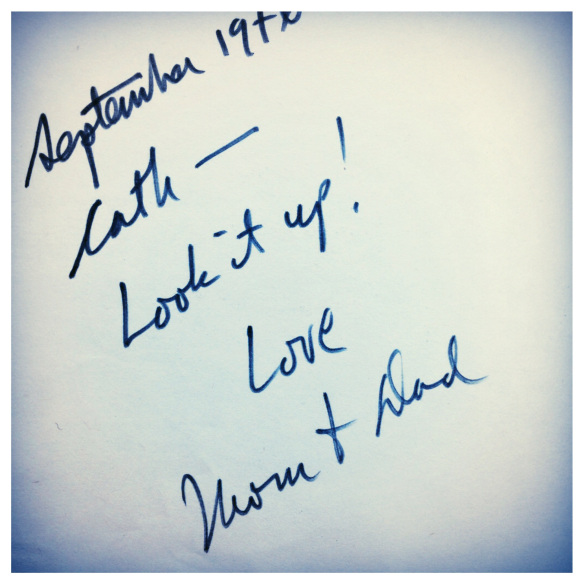 September
Cath —
Look it up!
Love
Mom + Dad